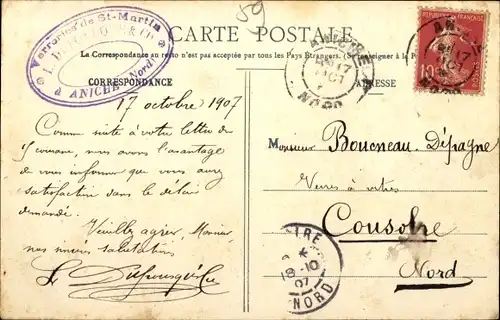 59
Verreries de St-Martin
à ANICHE (Nord)
CARTE POSTALE
La Correspondance au recto n'est pas acceptée par tous les Pays Étrangers. (Se renseigner à la Poste)
CORRESPONDANCE
ADRESSE
ANICHE
17
OCT
NORD
RÉPUBLIQUE FRANÇAISE
10
17 octobre 1907
Comme suite à votre lettre du
courant, nous avons l'avantage
de vous informer que vous aurez
satisfaction dans le délai
demandé.
Veuillez agréer, Monsieur
nos sincères salutations
Monsieur Boucneau-Dépagne
Verres à vitres
Cousolre
Nord
TRE
18-10
07
NORD